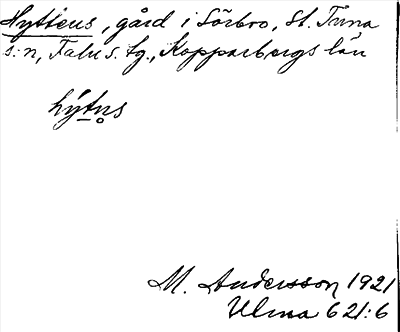 Hyttens, gård i Sörbro, St. Tuna
s:n, Falu s. tg., Kopparbergs län
hýtn̥s
M. Andersson 1921
Ulma 621:6